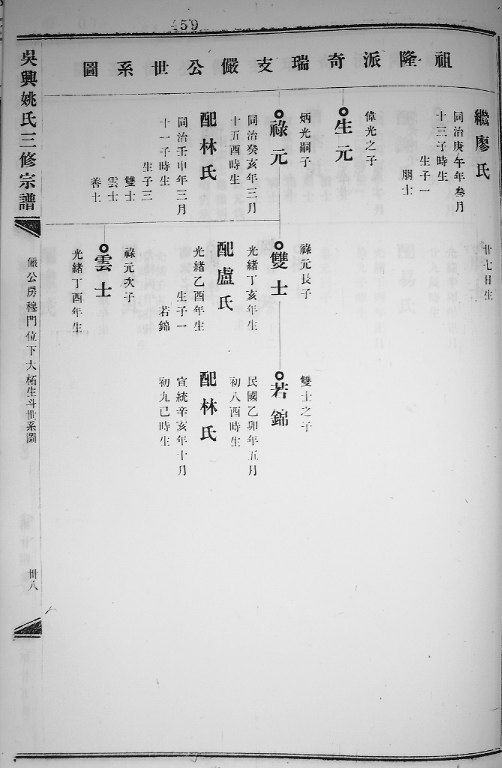 459
祖隆派奇瑞支儼公世系圖
繼廖氏
同治庚午年叁月
廿七日生
十三子時生
生子一
朋士
生元
偉光之子
祿元
炳光嗣子
同治癸亥年三月
十五酉時生
配林氏
同治壬申年三月
十一子時生
生子三
雙士
雲士
善士
雙士
祿元長子
光緒丁亥年生
配盧氏
光緒乙酉年生
生子一
若錦
雲士
祿元次子
光緒丁酉年生
若錦
雙士之子
民國乙卯年五月
初八酉時生
配林氏
宣統辛亥年十月
初九巳時生
吳興姚氏三修宗譜
儼公房穆門位下大柘生斗世系圖
卅八